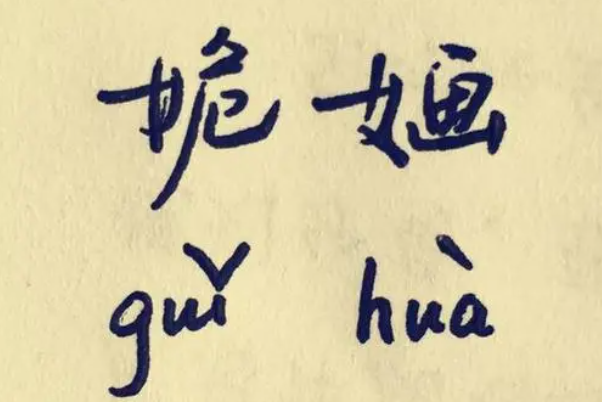 姽 婳
guǐ huà